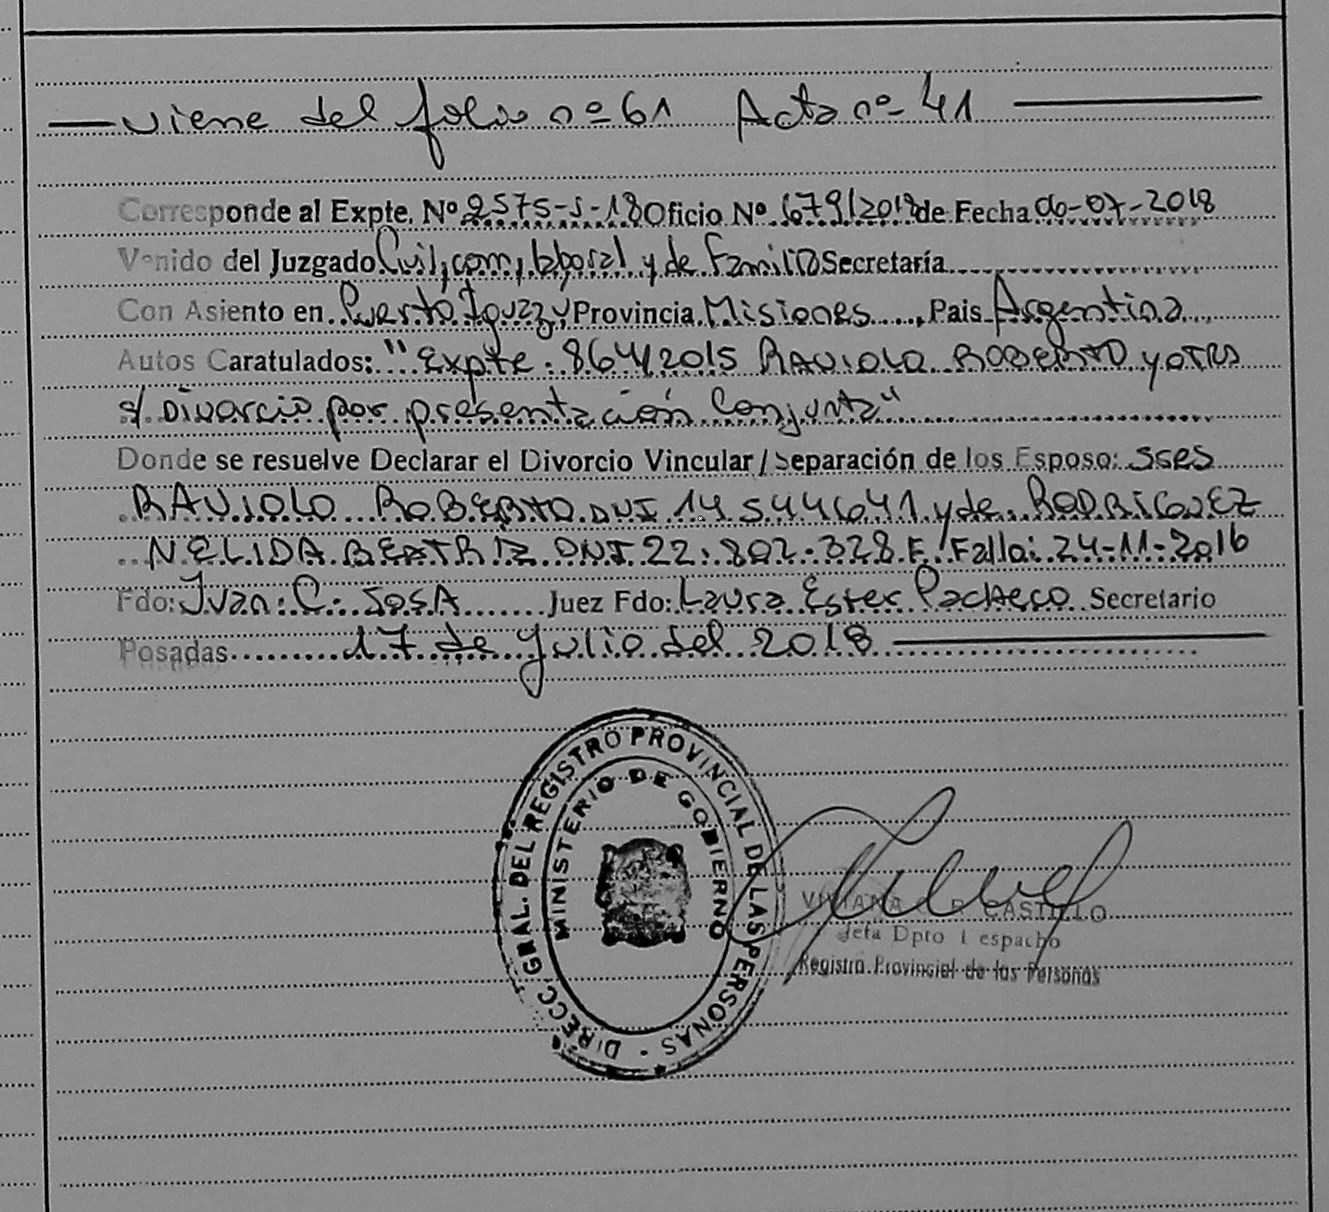 viene del folio nº 61 Acta nº 41
Corresponde al Expte. Nº 2575-S-18 Oficio Nº 679/2018 de Fecha 06-07-2018
Venido del Juzgado Civil, com, laboral y de Familia Secretaría
Con Asiento en Puerto Iguazú Provincia Misiones, Pais Argentina
Autos Caratulados: "Expte. 864/2015 RAVIOLO ROBERTO y OTRO
s/ Divorcio por presentación Conjunta"
Donde se resuelve Declarar el Divorcio Vincular / Separación de los Esposo: sres
RAVIOLO ROBERTO DNI 14544641 y de RODRIGUEZ
NELIDA BEATRIZ DNI 22.802.328 F. Fallo: 24-11-2016
Fdo: Juan C. SosA Juez Fdo: Laura Ester Pacheco Secretario
Posadas 17 de Julio del 2018
DIRECC. GRAL. DEL REGISTRO PROVINCIAL DE LAS PERSONAS
MINISTERIO DE GOBIERNO
VIVIANA CASTILLO
Jefa Dpto Despacho
Registro Provincial de las Personas